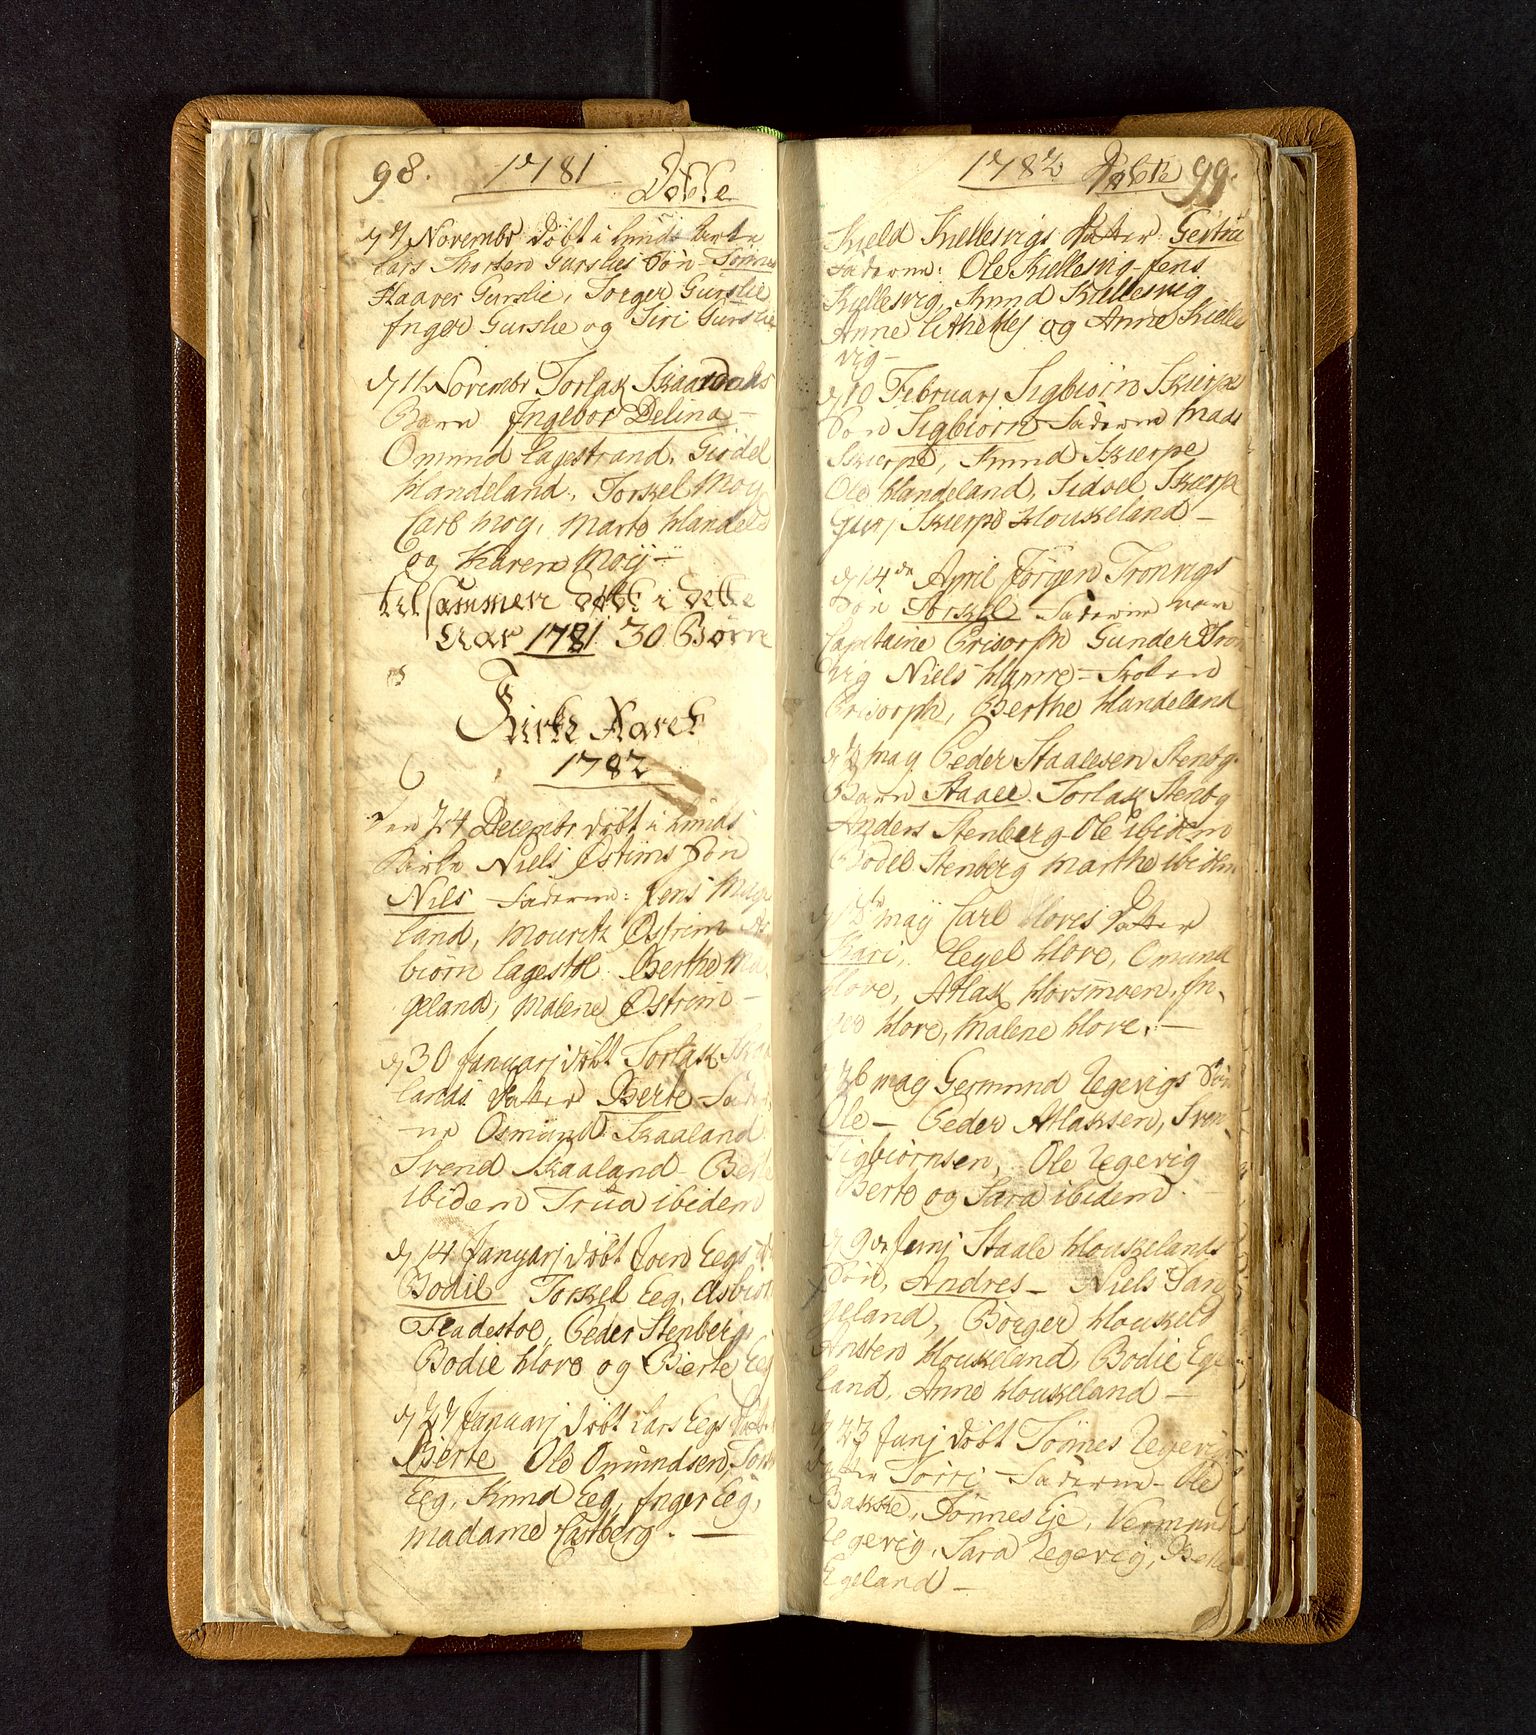 98. 1781
Døbte
d 4 Novembr døbt i Lunds Kirke
Lars Gurslies Søn Tønnes
Haaver Gurslie, Torger Gurslie
Inger Gurslie og Siri Gurslie
d 11 Novembr Torlak Skaardals
Barn Ingebor Delina
Omund Lagestrand, Giødel
Handeland, Torkel Moy
Carl Moy, Marte Handeld
og Karen Moij
tilsammen døbt i dette
Aar 1781 30 Børn
Kirke Aaret
1782
Den 24 Decembr døbt i Lunds
Kirke Niels Østims Søn
Nils Faderne: Jens Mage
land, Mouritz Østrem As
biørn Lagestøl Berthe Ma
geland, Malene Østrem
d 30 Januarj døbt Torlak Ska
lands Datter Berte Fad
ne Osmund Skaaland
Svend Skaaland Berte
ibidem Trua ibidem
d 14 Januarj døbt Joen Eegs
Bodil Torkel Eeg, Asbiørn
Fladestøl, Peder Stenberg
Bodil Hove og Bierte Eeg
d 27 Januarj døbt Lars Eegs Datt
Bierte Ole Omundsen, Tork
Eeg, Knud Eeg, Inger Eeg,
Madame Castberg.
1782 Døbte 99.
Kield Kiellesvigs Datter Gertru
Faderne: Ole Kiellesvig Jens
Kiellesvig, Knud Kiellesvig
Anne og Anne Kielles
vig
d 10 Februarj Sigbiørn Skierpes
Søn Sigbiørn Faderne Mads
Skierpe, Knud Skierpe
Ole Handeland, Sidsel Skierpe
Gurj Skierpe Houkeland
d 14de April Jørgen Tronvigs
Søn Torkel Faderne var
Capitaine Crisorph Gunder Tron
vig Niels Hamre
Crisorph, Berthe Handeland
d May Peder Staalesen Stenbg
Barn Staale Torlak Stenbg
Anders Stenberg Ole ibidem
Bodel Stenberg Marthe ibidem
d May Carl Hoves Datter
Kari, Eegel Hove, Omund
Hove, Atlak Hovsmoen, In
ger Hove, Malene Hove.
d 26 May Germund Egevigs Søn
Ole Peder Atlaksen, Sven
Sigbiørnsen, Ole Egevig
Berte og Sara ibidem.
d 9de Junj Staale Houkelands
Søn, Andres Niels San
geland, Børger Houkeld
Ansten Houkeland, Bodil Ege
land, Anne Houkeland
d 23 Junj døbt Tønnes Egevigs
Datter Torri Faderne Ole
Bakke, Tønnes Eje, Vermund
Egevig, Sara Egevig, Berte
Egeland